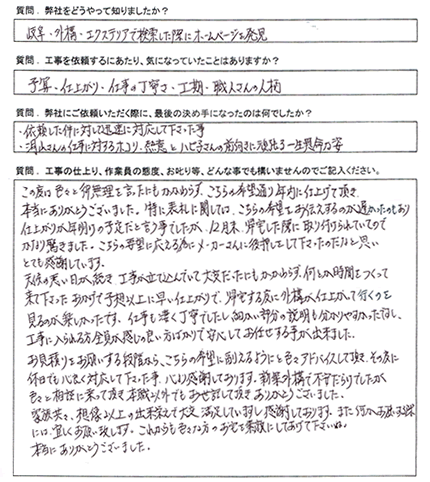 質問．弊社をどうやって知りましたか？
岐阜・外構・エクステリアで検索した際にホームページを発見
質問．工事を依頼するにあたり、気になっていたことはありますか？
予算・仕上がり・仕事の丁寧さ・工期・職人さんの人柄
質問．弊社にご依頼いただく際に、最後の決め手になったのは何でしたか？
・依頼した件に対して迅速に対応して下さった事
さんの仕事に対するホコリ、熱意と さんの前向きに頑張る一生懸命な姿
質問．工事の仕上り、作業員の態度、お叱り等、どんな事でも構いませんのでご記入ください。
この度は色々と御無理を言ったにもかかわらず、こちらの希望通り年内に仕上げて頂き、
本当にありがとうございました。特に表札に関しては、こちらの希望をお伝えするのが遅かったのもあり
仕上がりが年明けの予定だと言う事でしたが、12月末、帰宅した際に取り付けられていたので
かなり驚きました。こちらの希望に応える為にメーカーさんに後押しして下さったのだなと思い
とても感謝しています。
天候の悪い日が続き、工事が立て込んでいて大変だったにもかかわらず、何とか時間をつくって
来て下さったおかげで予想以上に早い仕上がりで、帰宅する度に外構が仕上がって行くのを
見るのが楽しかったです。仕事も凄く丁寧でしたし、細かい部分の説明も分かりやすかったなし、
工事に入られる方全員が感じの良い方ばかりで安心してお任せする事が出来ました。
お見積りをお願いする段階から、こちらの希望に副えるようにと色々アドバイスして頂き、その度に
何回でも心良く対応して下さった事、 感謝しております。新築外構で不安だらけでしたが
色々と相談に乗って頂き本職以外でもお世話して頂きありがとうございました。
家族共々、想像以上の出来栄えで大変満足していますし感謝しております。また何かお願いする際
には、宜しくお願い致します。これからも色々な方のお宅を素敵にしてあげて下さいね。
本当にありがとうございました。